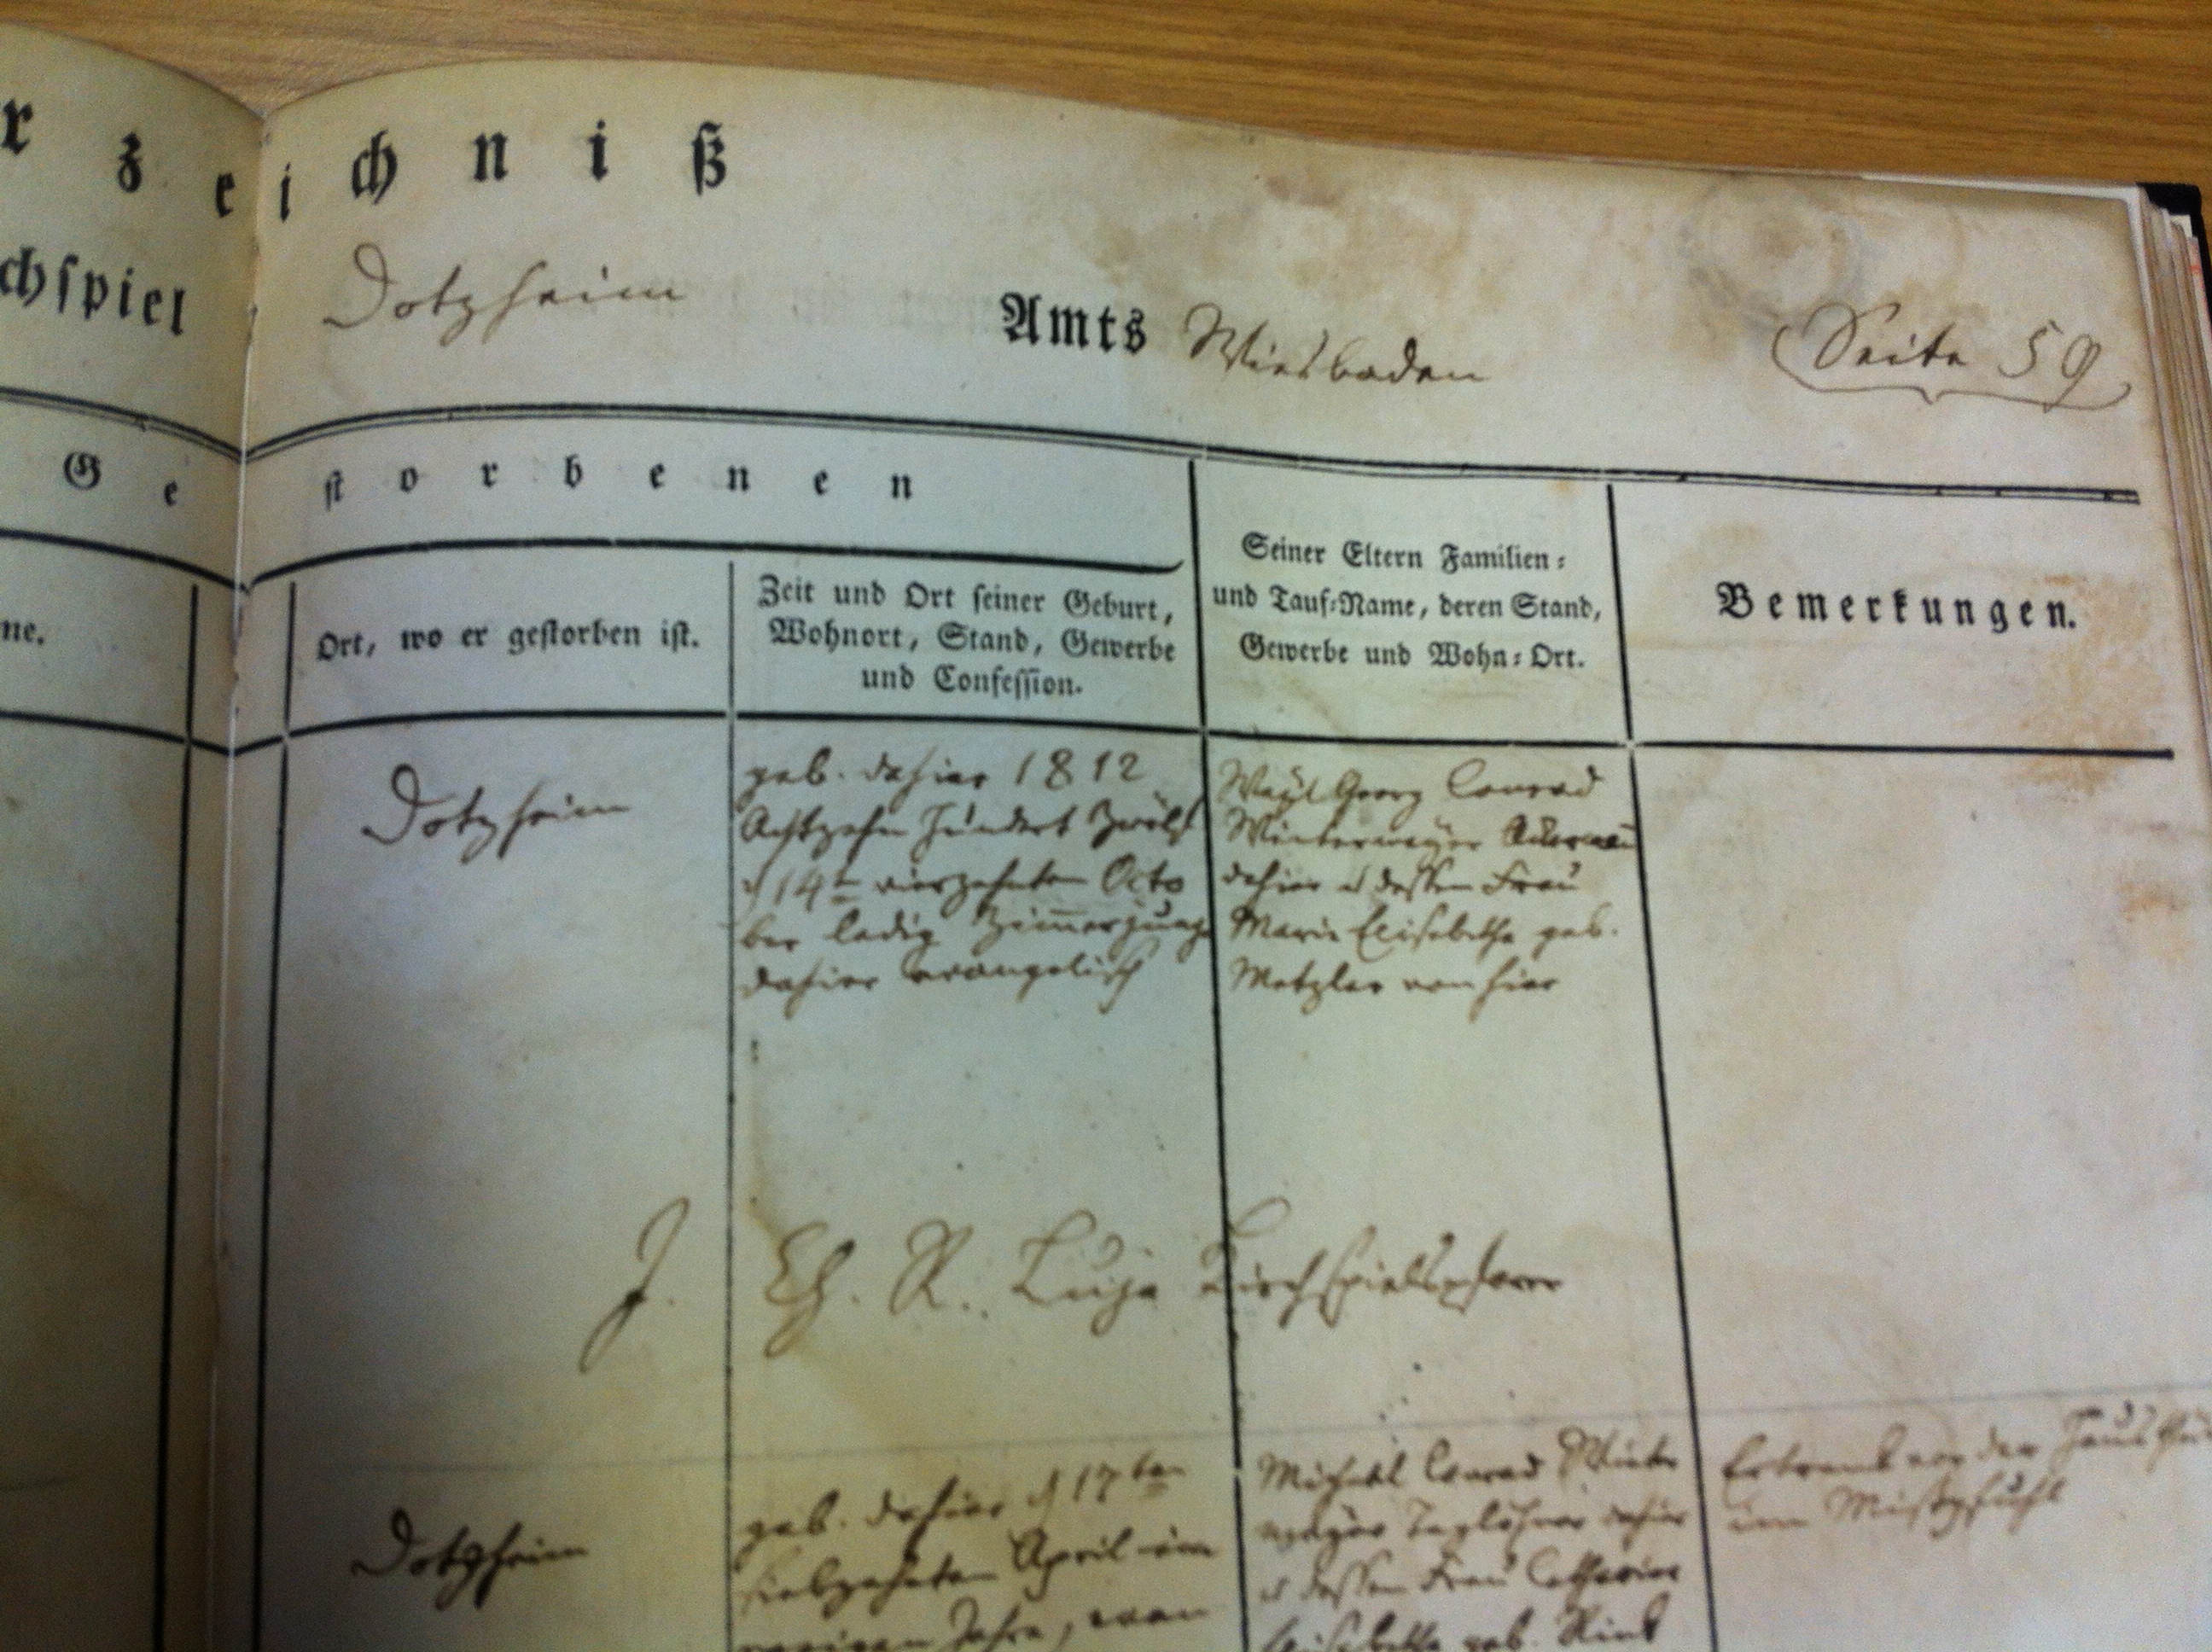 r z e i ch n i ß
chspiel Dotzheim Amts Wiesbaden Seite 59
G e st o r b e n e n
ne.
Ort, wo er gestorben ist.
Zeit und Ort seiner Geburt,
Wohnort, Stand, Gewerbe
und Confession.
Seiner Eltern Familien=
und Tauf=Name, deren Stand,
Gewerbe und Wohn=Ort.
Bemerkungen.
Dotzheim
geb. dahier 1812
Achtzehn hundert zwölf
d 14tn vierzehnten Octo
ber ledig Zim̄erjunge
dahier evangelisch
Weyl Georg Conrad
Wintermeyer Ackerman̄
dahier u dessen Frau
Marie Elisabetha geb.
Metzler von hier
J. Ch. R. Luja Kirchspielspfarrer
Dotzheim
geb. dahier d 17ten
siebzehnten April im
vorigen Jahre, evan
Michael Conrad Winter
meyer Taglöhner dahier
u dessen Frau Catharine
Elisabetha geb. Rink
Ertrank vor der
im Mistpfuhl